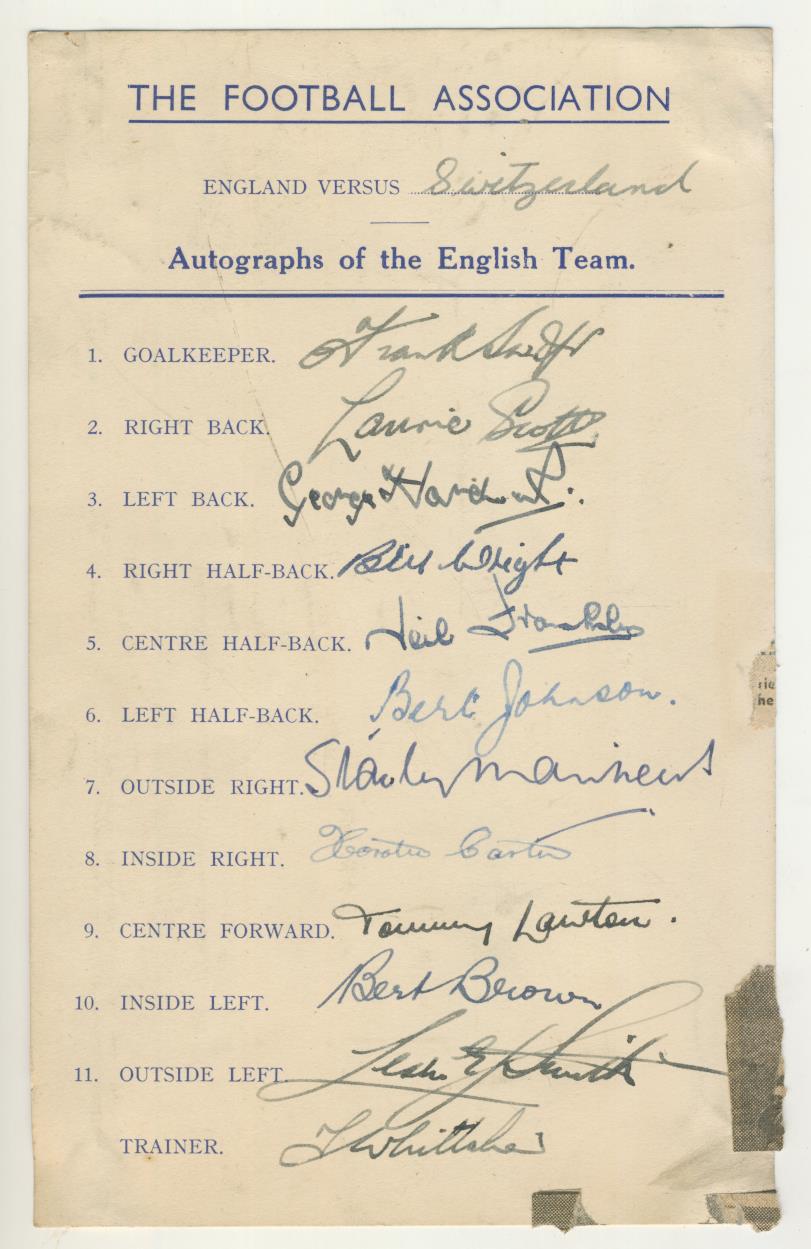 THE FOOTBALL ASSOCIATION
ENGLAND VERSUS Switzerland
Autographs of the English Team.
1. GOALKEEPER. Frank Swift
2. RIGHT BACK. Laurie Scott
3. LEFT BACK. George Hardwick
4. RIGHT HALF-BACK. Billy Wright
5. CENTRE HALF-BACK. Neil Franklin
6. LEFT HALF-BACK. Bert Johnson.
7. OUTSIDE RIGHT. Stanley Matthews
8. INSIDE RIGHT. Horatio Carter
9. CENTRE FORWARD. Tommy Lawton.
10. INSIDE LEFT. Bert Brown
11. OUTSIDE LEFT. Leslie G Smith
TRAINER. T Whittaker
he